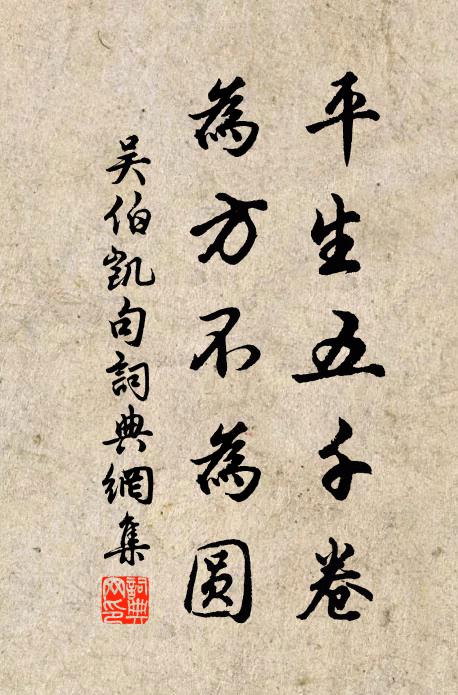 平生五千卷
為方不為圓
吳伯凱句詞典網集
詞典网印